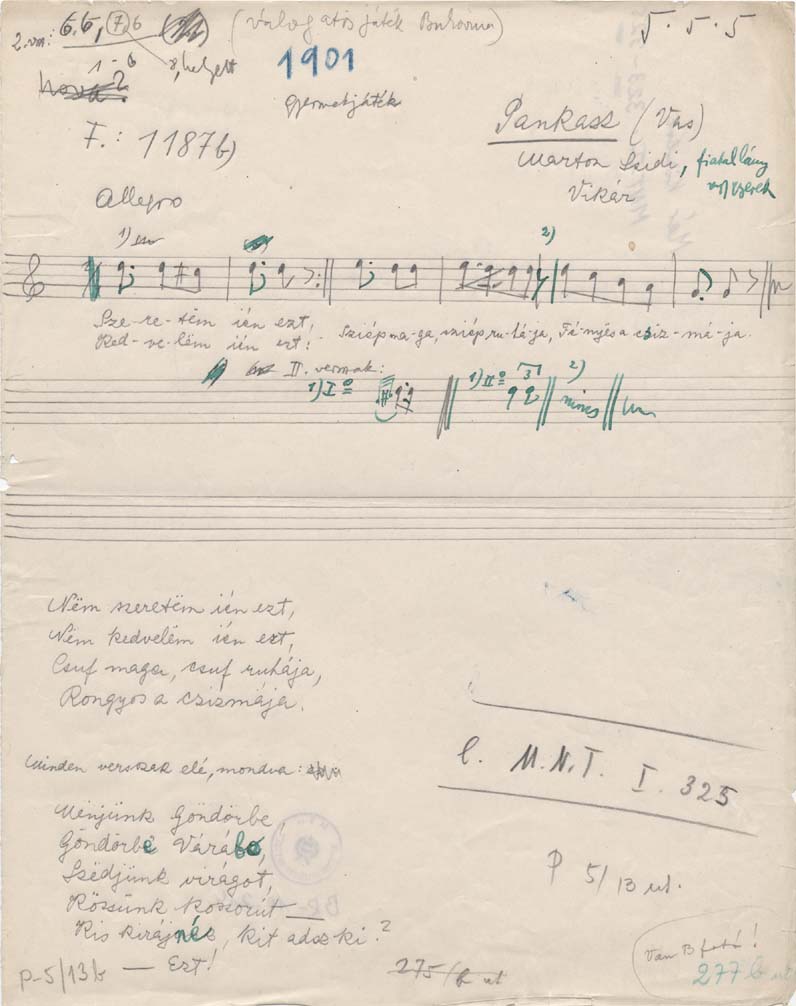 2. vsz: 6.6, (7.)6 (Válogatós játék Bukovina) 5.5.5
1-6 8, helyett
1901
hova?
gyermekjáték
F.: 1187b)
Pankasz (Vas)
Marton Szidi, fiatal lány
Vikár
Allegro
1)
2)
Sze-re-tëm ién ezt,
Szíép ma-ga, sziép ru-há-ja, Fé-nyës a csiz-má-ja.
Ked-ve-lëm ién ezt!
II. versszak:
1) I°
1) II° 3
2)
nincs
Nëm szeretëm ién ezt,
Nëm kedvelëm ién ezt,
Csuf maga, csuf ruhája,
Rongyos a csizmája.
Minden versszak elé, mondva:
Mënjünk Göndörbe,
Göndörbé Várába,
Szëdjünk virágot,
Kössünk koszorút —
Kis kirájné, kit adsz ki?
— Ezt!
l. M.N.T. I. 325
P 5/13 ut.
P-5/13b
275/b ut
Van B fotó!
277b ut